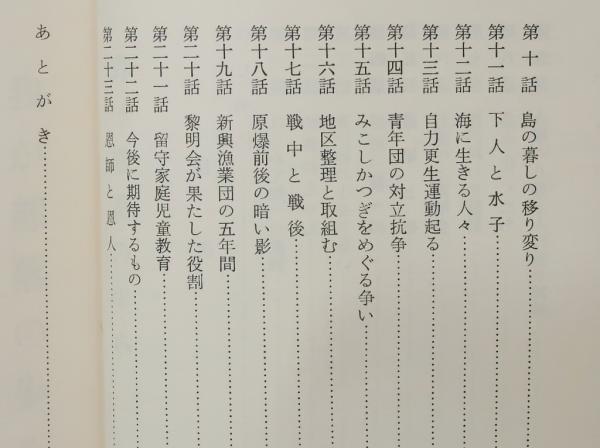 第十話 島の暮しの移り変り
第十一話 下人と水子
第十二話 海に生きる人々
第十三話 自力更生運動起る
第十四話 青年団の対立抗争
第十五話 みこしかつぎをめぐる争い
第十六話 地区整理と取組む
第十七話 戦中と戦後
第十八話 原爆前後の暗い影
第十九話 新興漁業団の五年間
第二十話 黎明会が果たした役割
第二十一話 留守家庭児童教育
第二十二話 今後に期待するもの
第二十三話 恩師と恩人
あとがき